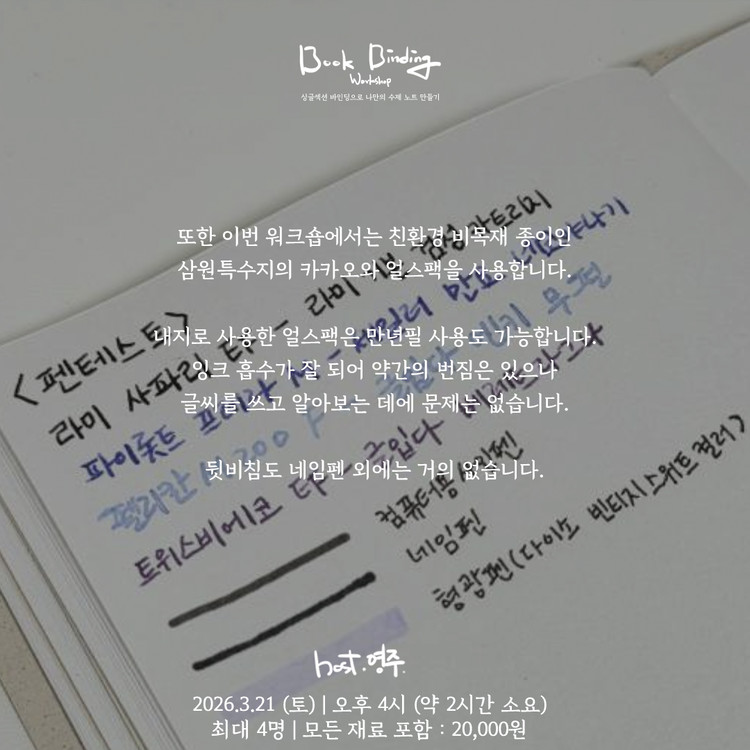 Book Binding
Workshop
싱글섹션 바인딩으로 나만의 수제 노트 만들기
또한 이번 워크숍에서는 친환경 비목재 종이인
삼원특수지의 카카오와 얼스팩을 사용합니다.
내지로 사용한 얼스팩은 만년필 사용도 가능합니다.
잉크 흡수가 잘 되어 약간의 번짐은 있으나
글씨를 쓰고 알아보는 데에 문제는 없습니다.
뒷비침도 네임펜 외에는 거의 없습니다.
<펜테스트>
라미 사파리 EF - 라미
파이롯트 프레라 M -
펠리칸 M200 F
트위스비에코 EF -
컴퓨터용
네임펜
형광펜(다이소 빈티지스위트컬러)
host.영주
2026.3.21 (토) | 오후 4시 (약 2시간 소요)
최대 4명 | 모든 재료 포함 : 20,000원